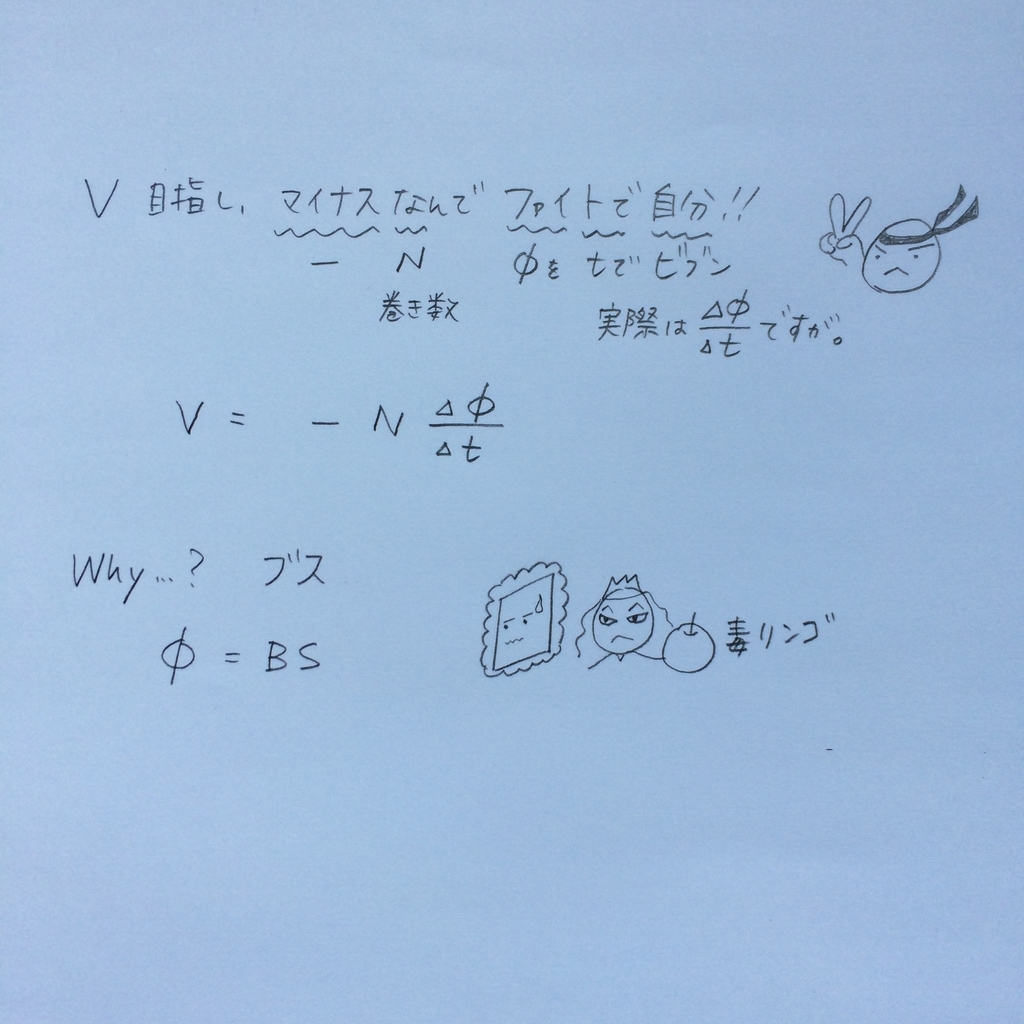 V 目指し、マイナスなんで ファイトで自分!!
− N φを tで ビブン
巻き数 実際は Δφ/Δt ですが。
V = − N Δφ/Δt
Why...? ブス
φ = BS
毒リンゴ